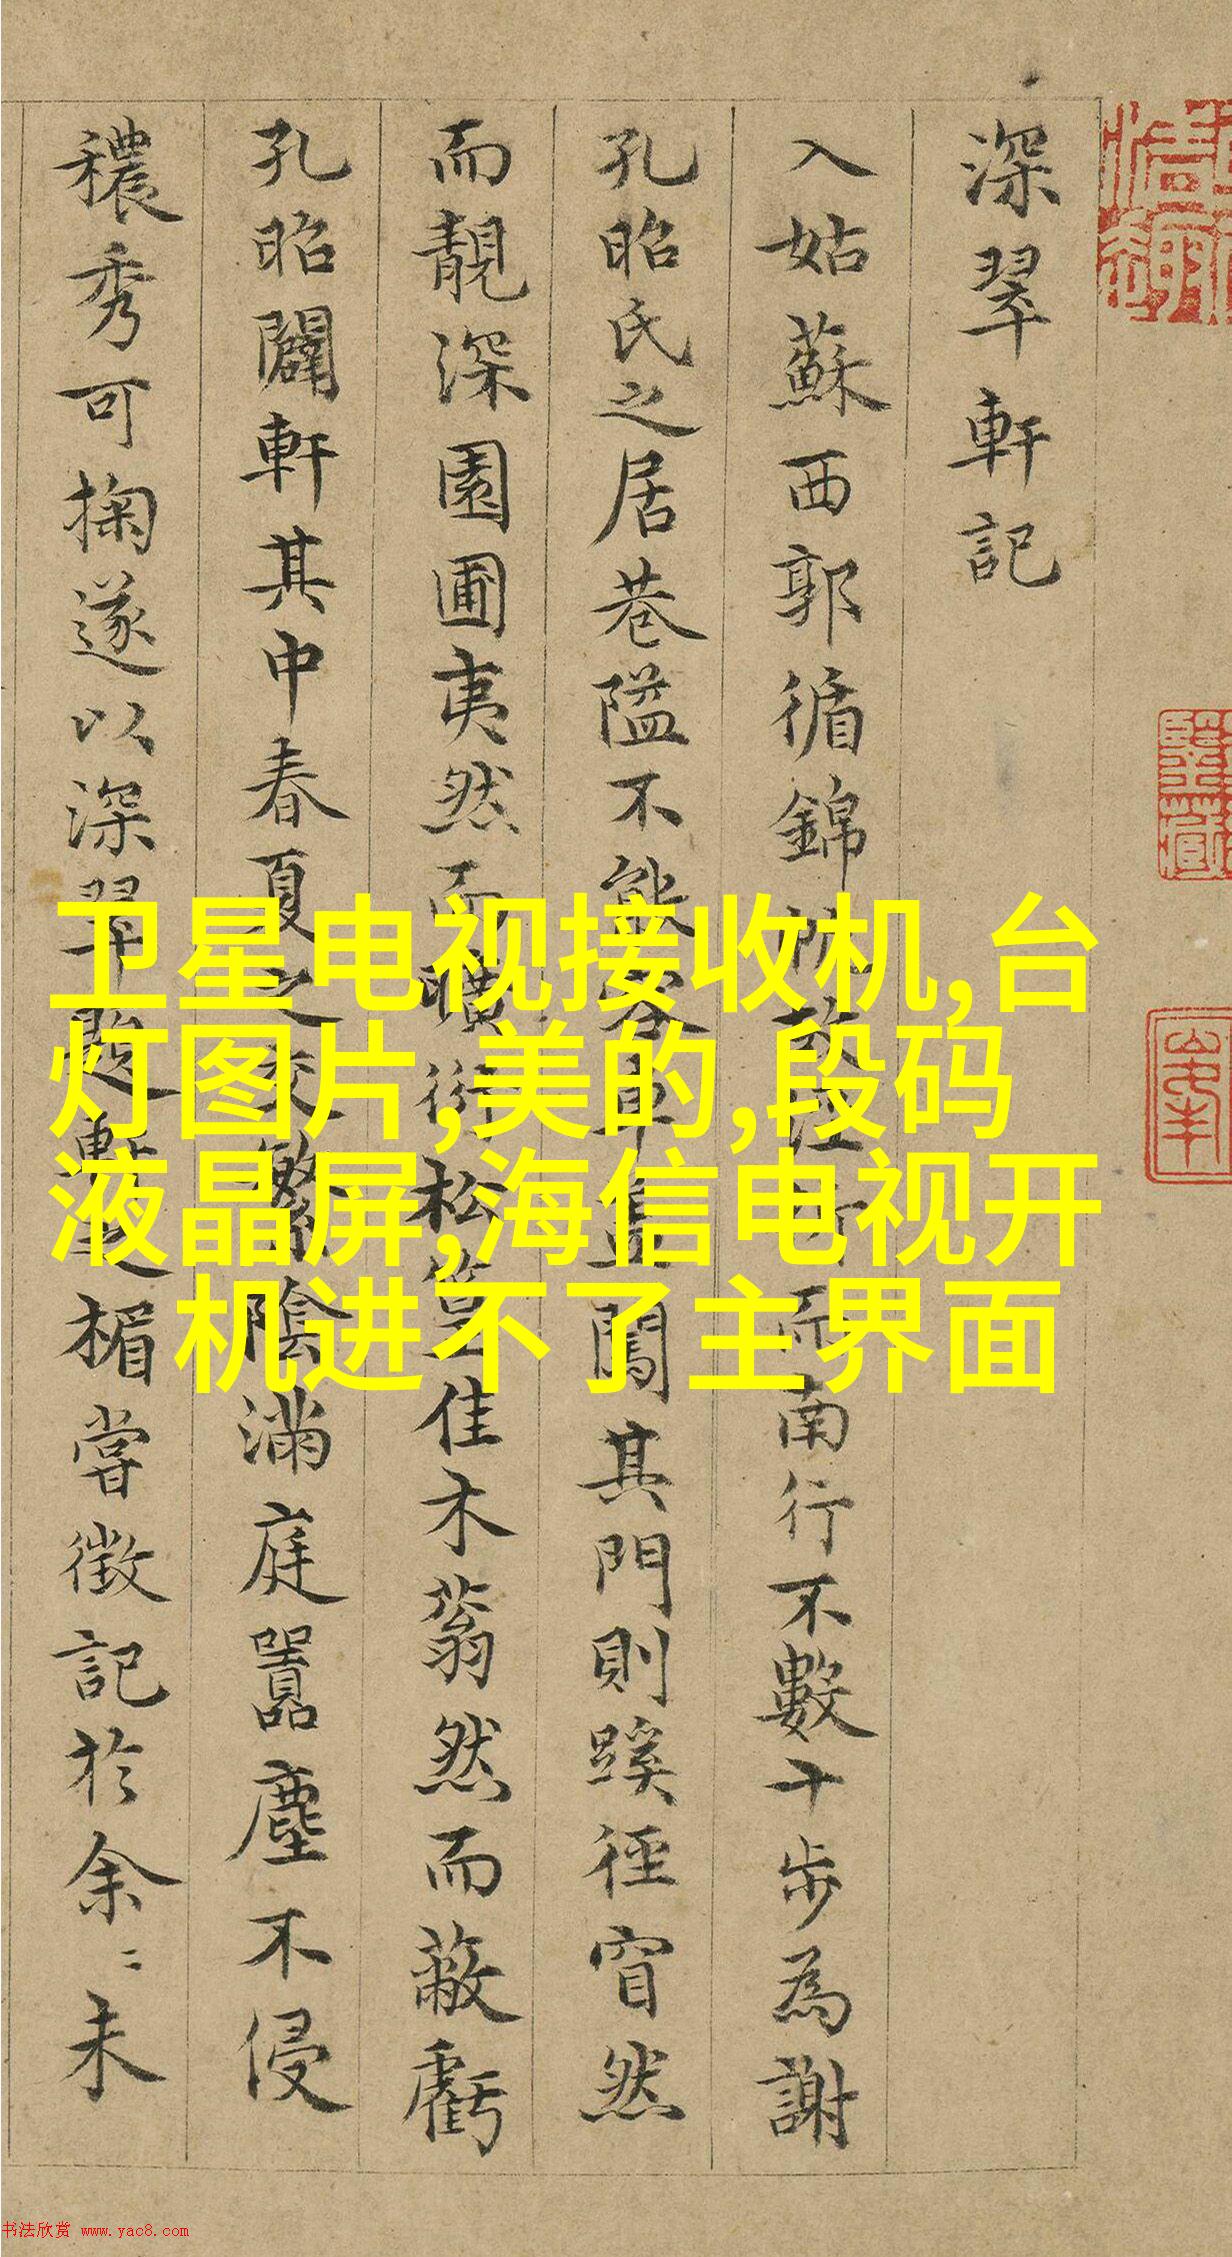 深翠軒記
入姑蘇西郭循錦而南行不數十步為謝
孔昭氏之居巷隘不能容車蓋闖其門則蹊徑窅然
而靚深園圃夷然而曠衍松篁佳木蓊然而蔽虧
孔昭闢軒其中春夏之交繁陰滿庭囂塵不侵
穠秀可掬遂以深翠題軒之楣嘗徴記於余〻未
卫星电视接收机,台
灯图片,美的,段码
液晶屏,海信电视开
机进不了主界面
书法欣赏 www.yac8.com